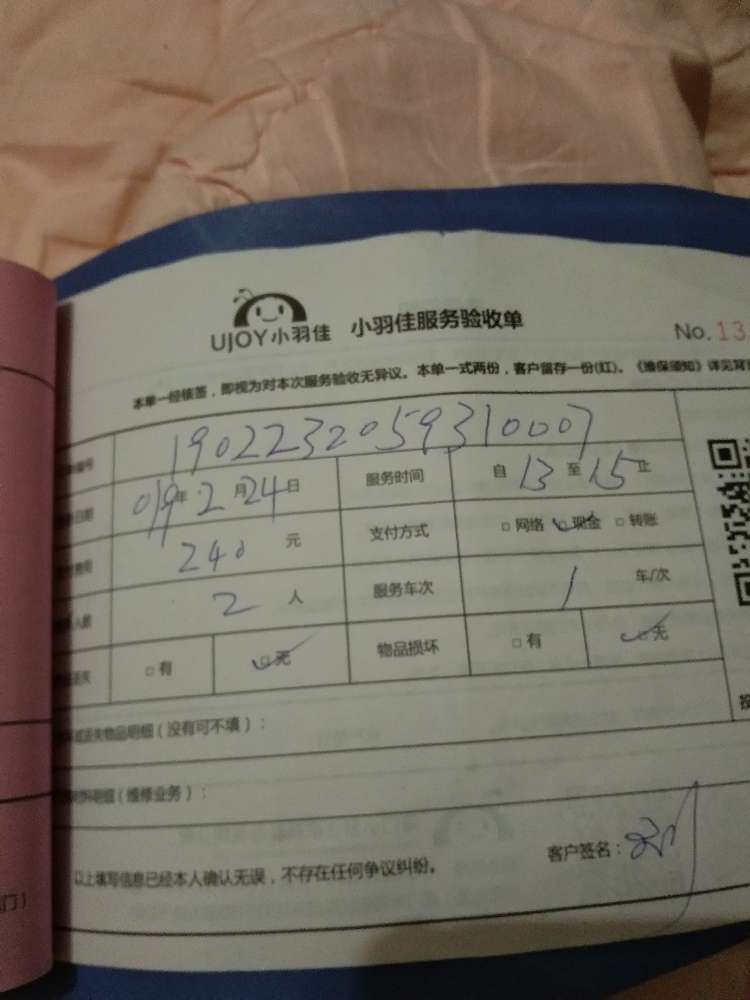 UJOY小羽佳 小羽佳服务验收单
No. 13
本单一经核签，即视为对本次服务验收无异议。本单一式两份，客户留存一份(红)。《维保须知》详见
编号 1902232059310007
日期 019年2月24日 服务时间 自13至15止
240元 支付方式 □网络 ☑现金 □转账
2人 服务车次 1 车/次
□有 ☑无 物品损坏 □有 ☑无
丢失物品明细（没有可不填）：
明细（维修业务）：
以上填写信息已经本人确认无误，不存在任何争议纠纷。 客户签名：